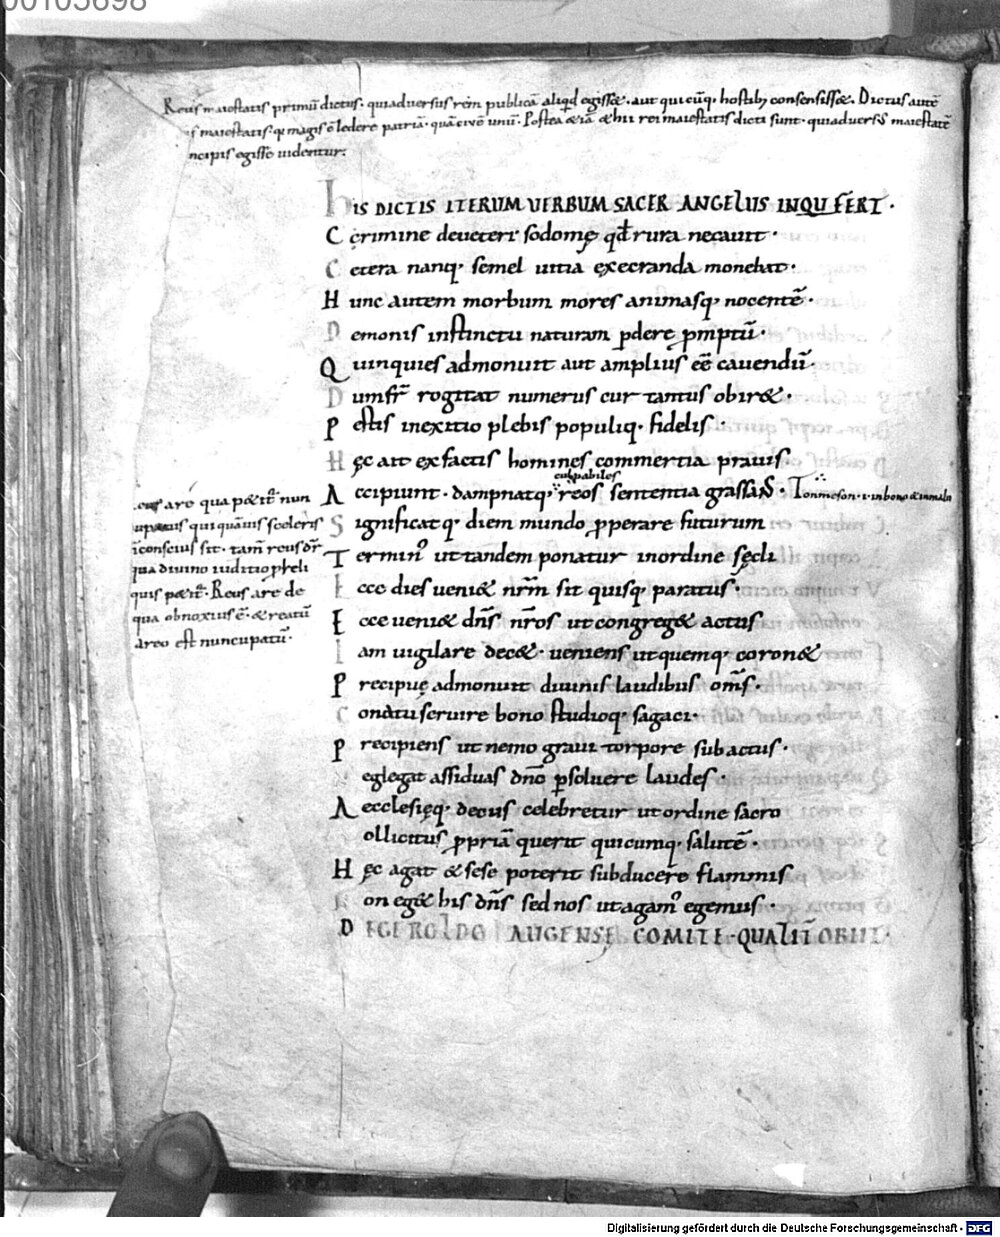 00105698
Reus maiestatis primū dictus. quiaduersus rem publicā aliqd egisset. aut quicūq; hostib; consensisset. Dictus autē
is maiestatis. q magis ē ledere patriā. quā ciuē unū. Postea etiā et hii rei maiestatis dicti sunt. quiaduersus maiestatē
ncipis egisse uidentur.
HIS DICTIS ITERUM VERBUM SACER ANGELUS INQU FERT.
C crimine deueteri sodomę qd rura necauit.
C etera nanq; semel uitia ęxecranda monebat.
H unc autem morbum mores animasq; nocentē.
D emonis instinctu naturam pdere pmptū.
Q uinquies admonuit aut amplius eē cauendū.
D umfr̄ rogitat numerus cur tantus obiret.
P estis inexitio plebis populiq; fidelis.
H ęc ait exfactis homines commertia prauis
culpabiles
A ccipiunt. dampnatq; reos sententia grassans. Tonmeson. i. inbono et inmalo
S ignificatq; diem mundo pperare futurum
T ermin' uttandem ponatur inordine sęcli
E cce dies ueniet nrm̄ sit quisq; paratus.
E cce ueniet dn̄s nr̄os ut congreget actus
I am uigilare decet. ueniens utquemq; coronet
P recipuę admonuit diuinis laudibus om̄s.
C onātu seruire bono studioq; sagaci.
P recipiens ut nemo graui torpore subactus.
N eglegat assiduas dn̄o psoluere laudes.
A ecclesięq; decus celebretur utordine sacro
ollicitus ppriā querit quicumq; salutē.
H ęc agat et sese poterit subducere flammis
N on eget his dn̄s sed nos utagam' egemus.
D EGEROLDO AUGENSE COMITE. QUALIT OBIIT.
reus a re qua petit' nun
cupatus qui quāuis sceleris
īconscius sit. tam̄ reus dr̄
qua diuino iuditio p
quis petit'. Reus a re de
qua obnoxius ē. et reatū
a reo est nuncupatū.
Digitalisierung gefördert durch die Deutsche Forschungsgemeinschaft - DFG